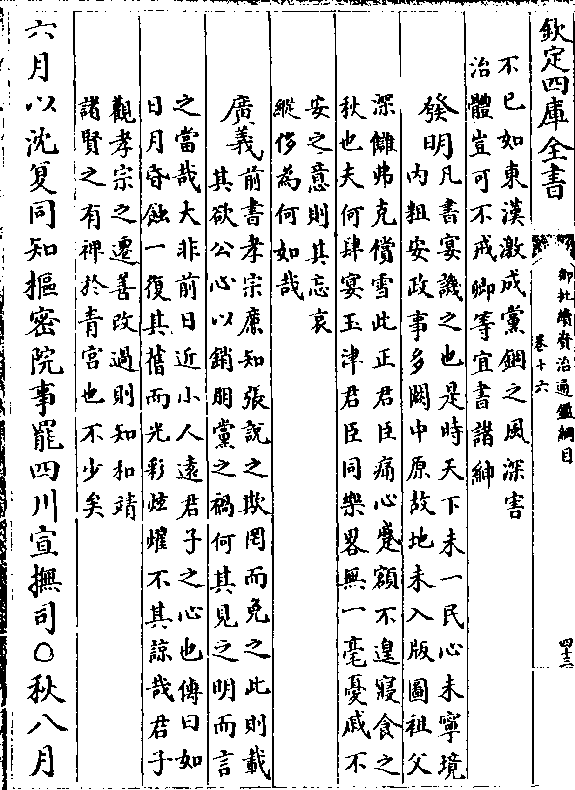 欽定四庫全書
御批續資治通鑑綱目
卷十六
四十三
不已如東漢激成黨錮之風深害
治體豈可不戒卿等宜書諸紳
發明凡書宴譏之也是時天下未一民心未寧境
内粗安政事多闕中原故地未入版圖祖父
深讎弗克償雪此正君臣痛心蹙額不遑寢食之
秋也夫何肆宴玉津君臣同樂畧無一毫憂戚不
安之意則其忘哀
縱侈為何如哉
廣義前書孝宗廉知張說之欺罔而免之此則載
其欲公心以銷朋黨之禍何其見之明而言
之當哉大非前日近小人遠君子之心也傳曰如
日月昏蝕一復其舊而光彩炫耀不其諒哉君子
觀孝宗之遷善改過則知和靖
諸賢之有裨於青宮也不少矣
六月以沈夏同知樞密院事罷四川宣撫司○秋八月